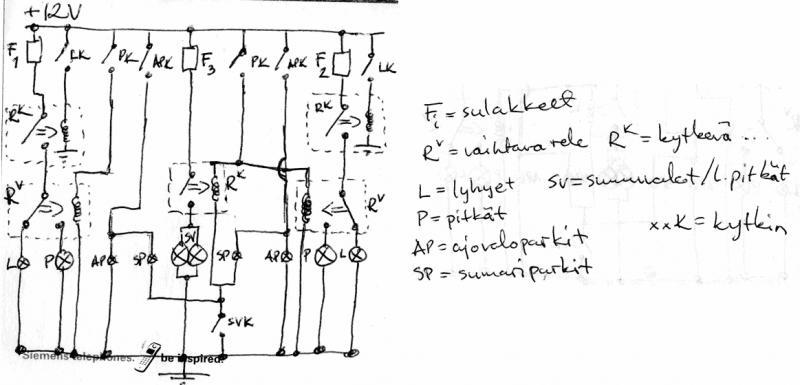 +12V
F1 LK PK APK F3 PK APK F2 LK
RK RK
RV RK RV
SV
L P AP SP SP AP P L
SVK
Siemens telephones. be inspired.
Fi = sulakkeet
RV = vaihtava rele RK = kytkevä ...
L = lyhyet SV = sumuvalot/l.pitkät
P = pitkät xxK = kytkin
AP = ajovaloparkit
SP = sumariparkit